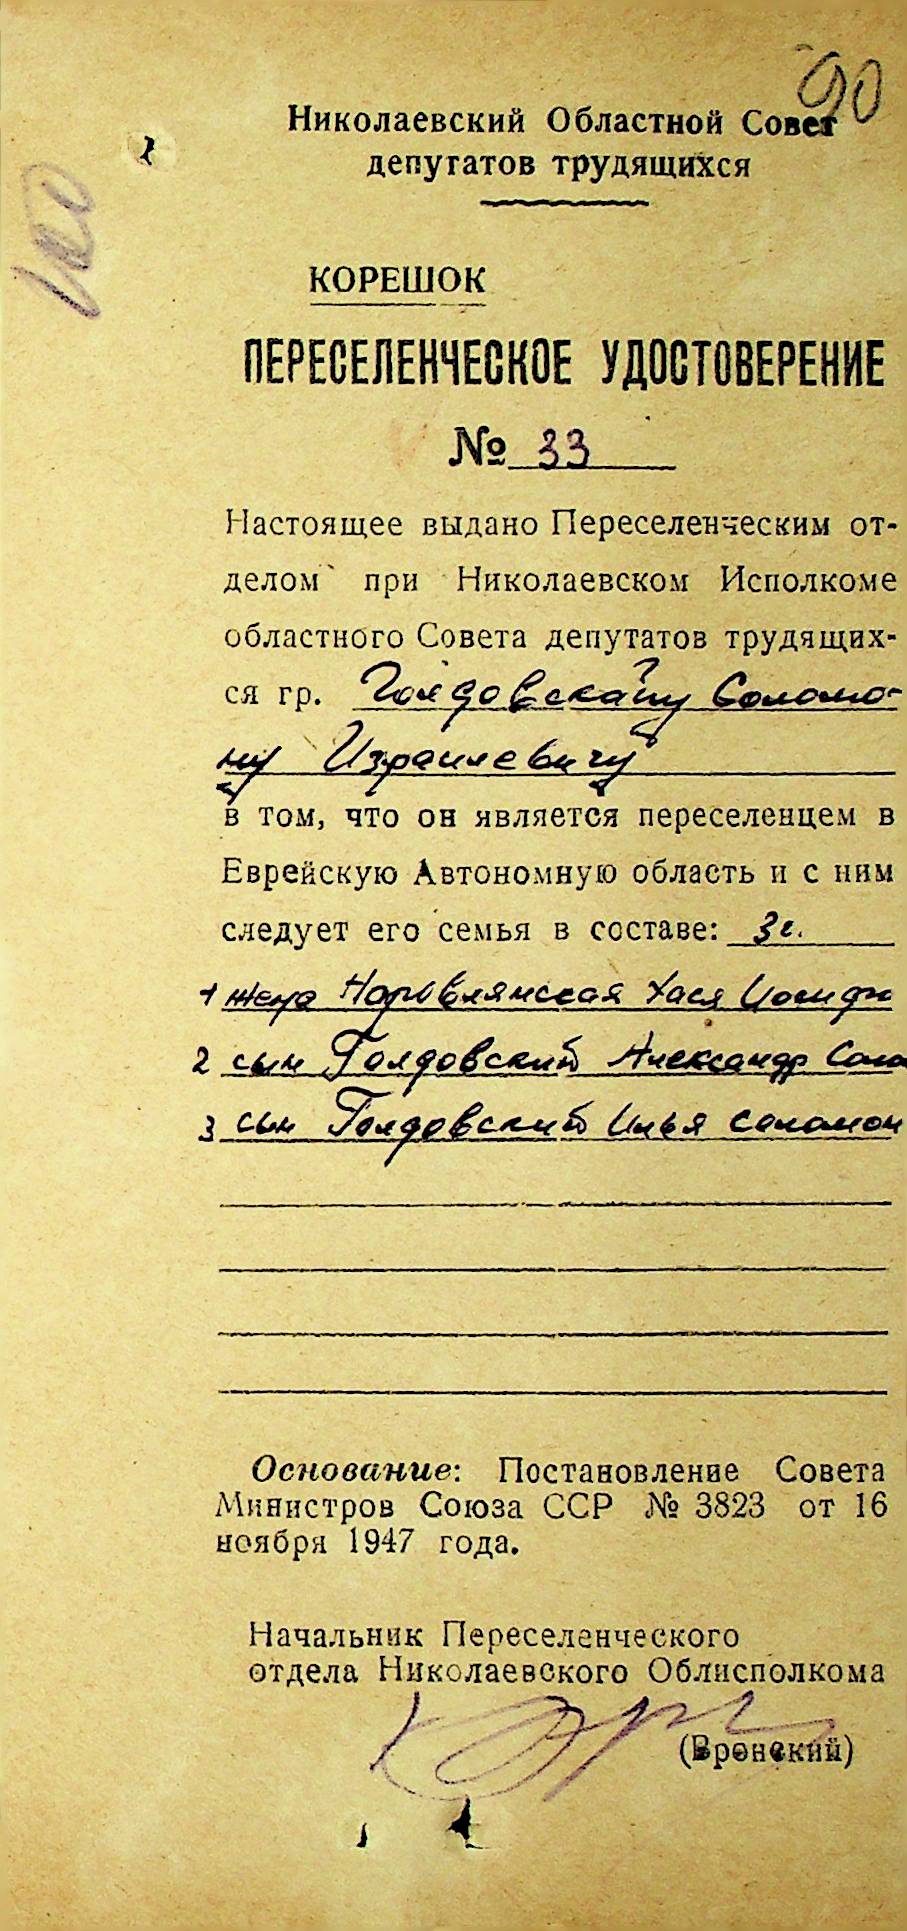 90
Николаевский Областной Совет
депутатов трудящихся
100
КОРЕШОК
ПЕРЕСЕЛЕНЧЕСКОЕ УДОСТОВЕРЕНИЕ
№ 33
Настоящее выдано Переселенческим от-
делом при Николаевском Исполкоме
областного Совета депутатов трудящих-
ся гр. Голдовскому Соломо-
ну Израилевичу
в том, что он является переселенцем в
Еврейскую Автономную область и с ним
следует его семья в составе: 3 г.
1 жена Норовлянская Хася Иосифо
2 сын Голдовский Александр Соло
3 сын Голдовский Илья Соломон
Основание: Постановление Совета
Министров Союза ССР № 3823 от 16
ноября 1947 года.
Начальник Переселенческого
отдела Николаевского Облисполкома
(Вронский)